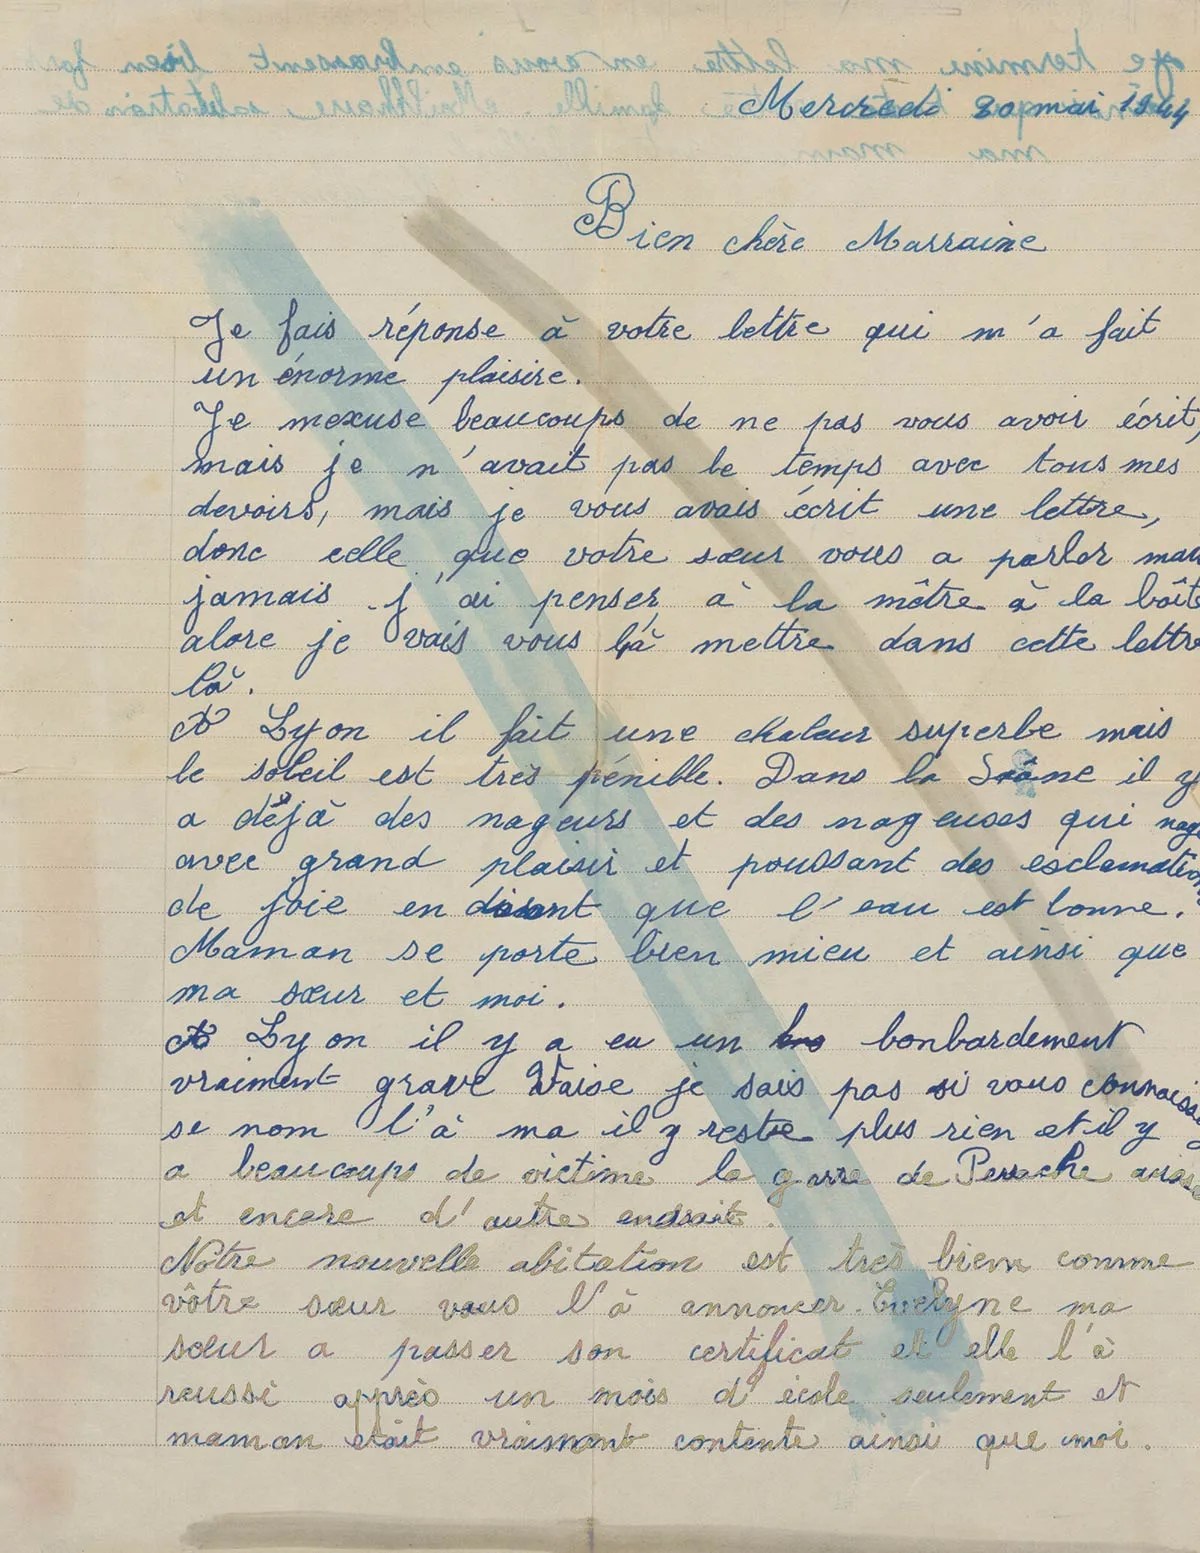 Mercredi 20 mai 1944
Bien chère Marraine
Je fais réponse à votre lettre qui m'a fait
un énorme plaisire.
Je mexuse beaucoups de ne pas vous avoir écrit,
mais je n'avait pas le temps avec tous mes
devoirs, mais je vous avais écrit une lettre,
donc celle que votre sœur vous a parler mais
jamais j'ai penser à la mêtre à la boîte
alore je vais vous là mettre dans cette lettre
là.
A Lyon il fait une chaleur superbe mais
le soleil est très pénible. Dans la Saône il y
a déjà des nageurs et des nageuses qui nage
avec grand plaisir et poussant des esclamation
de joie en disant que l'eau est bonne.
Maman se porte bien mieu et ainsi que
ma sœur et moi.
A Lyon il y a eu un bonbardement
vraiment grave Vaise je sais pas si vous connaiss
se nom l'à ma il y reste plus rien et il y
a beaucoups de victime la garre de Perrache aussi
et encore d'autre endrait.
Notre nouvelle abitation est très bien comme
vôtre sœur vous l'à annoncer. Evelyne ma
sœur a passer son certificat et elle l'à
reussi apprès un mois d'école seulement et
maman etait vraiment contente ainsi que moi.
je termine ma lettre en vous embrassent bien fort
famille Mailhoure, salutation de
ma mam